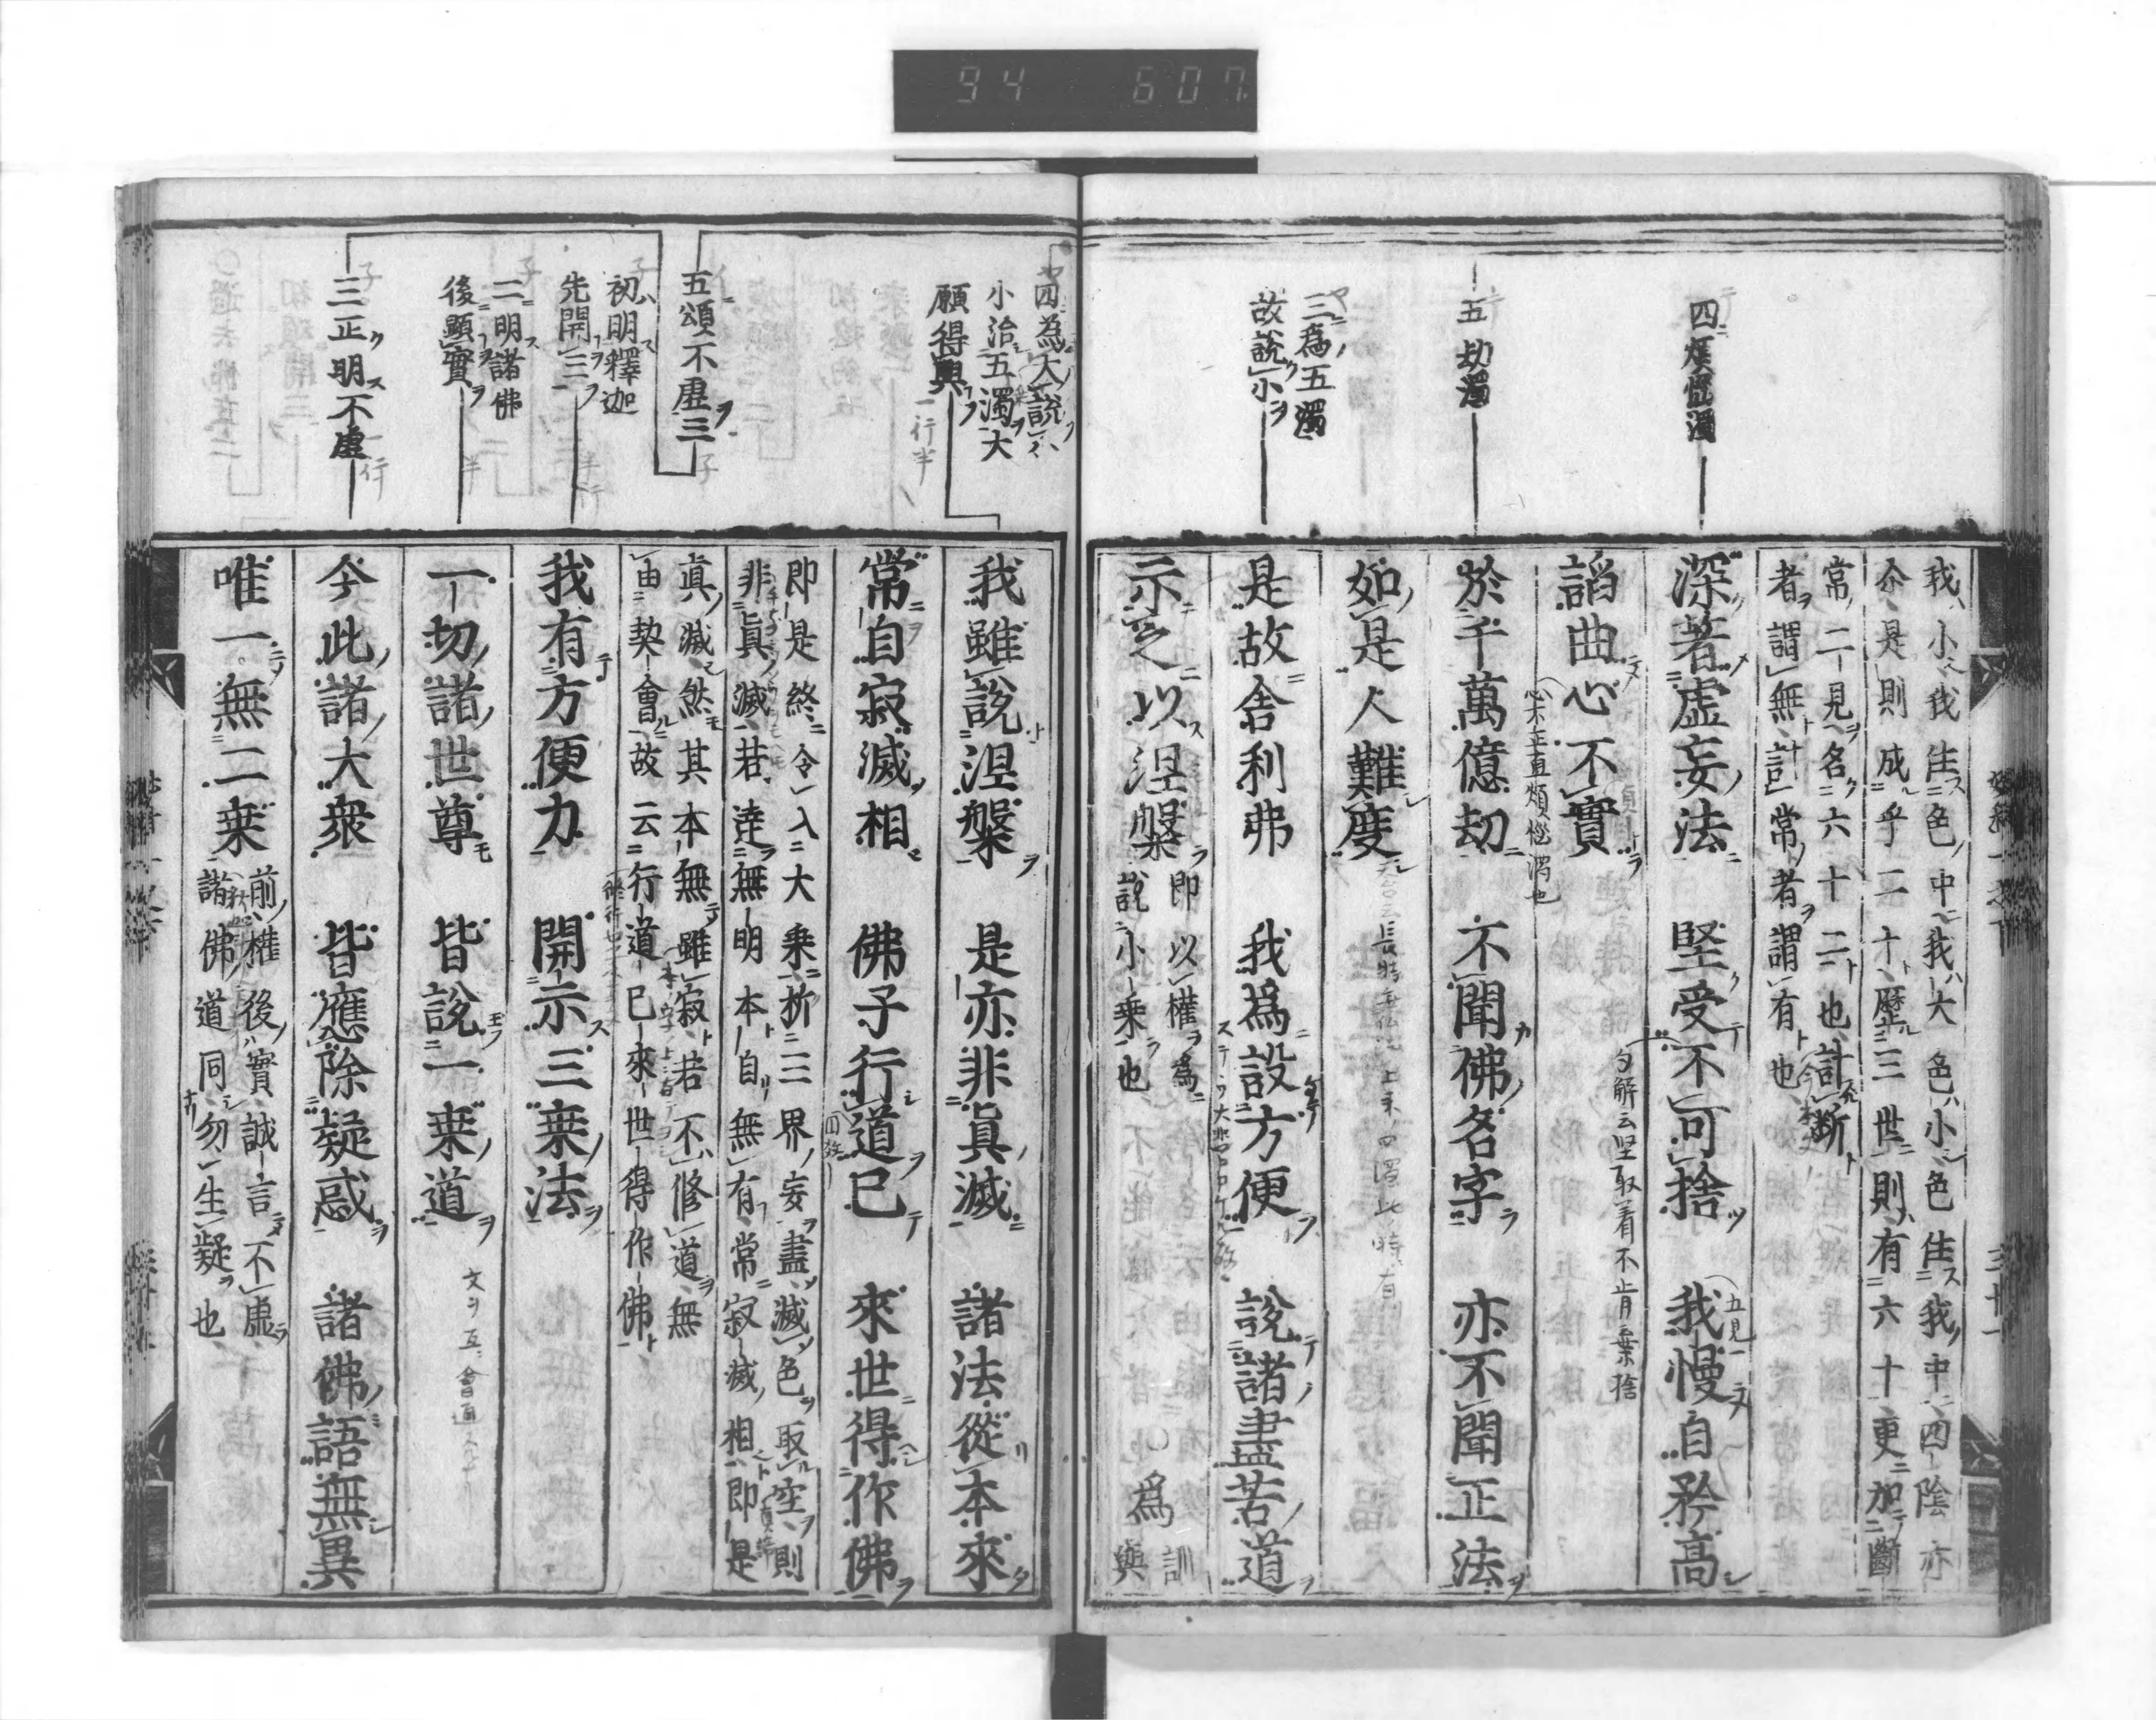 94 607
四煩惱濁
五劫濁
三爲五濁
故說小
我小我住色中我大色小色住我中四陰亦
尒是則成乎二十歷三世則有六十更加斷
常二見名六十二也計斷
者謂無計常者謂有也
深著虛妄法 堅受不可捨 我慢自矜高
諂曲心不實
於千萬億劫 不聞佛名字 亦不聞正法
如是人難度
是故舍利弗 我爲設方便 說諸盡苦道
示之以涅槃
即以權爲
說小乘也
○爲
訓
與
四爲大說小
小治五濁大
願得興
五頌不虛三
初明釋迦
先開三
二明諸佛
後顯實
三正明不虛
我雖說涅槃 是亦非眞滅 諸法從本來
常自寂滅相 佛子行道已 來世得作佛
即是終令入大乘析三界妄盡滅色取空則
非眞滅若達無明本自無有常寂滅相即是
眞滅然其本無雖寂若不修道無
由契會故云行道已來世得作佛
我有方便力 開示三乗法
一切諸世尊 皆說一乗道
今此諸大衆 皆應除疑惑 諸佛語無異
唯一無二乗
前權後實誠言不虛
諸佛道同勿生疑也